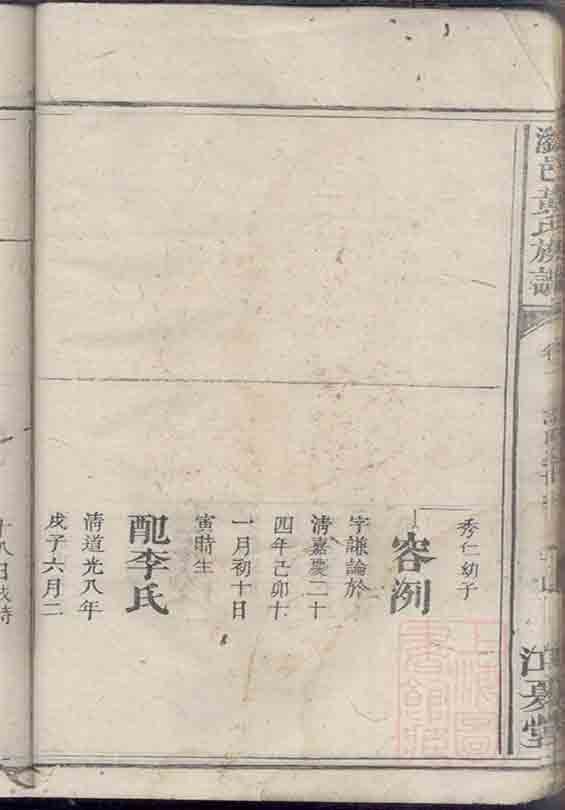 邑黃氏族譜
江夏堂
秀仁幼子
容洌
字謙論於
清嘉慶二十
四年己卯十
一月初十日
寅時生
配李氏
清道光八年
戊子六月二
十八日戌時